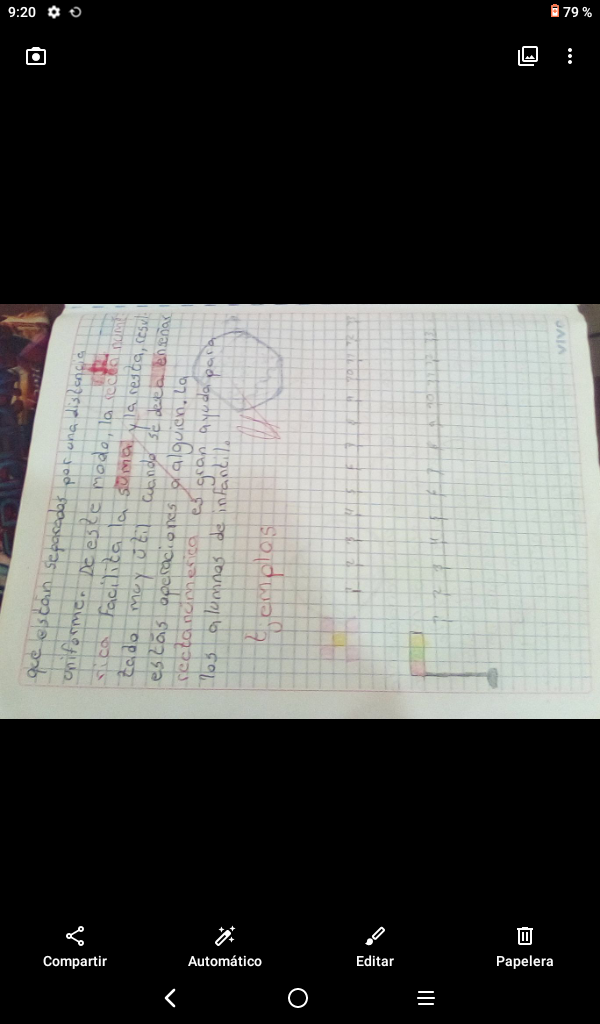 9:20
79 %
que están separados por una distancia
uniforme. De este modo, la recta numé
rica facilita la suma y la resta, resul
tado muy útil cuando se desea enseñar
estas operaciones a alguien. La
recta numerica es gran ayuda para
los alumnos de infantil.
Ejemplos
1 2 3 4 5 6 7 8 9 10 11 12 13
1 2 3 4 5 6 7 8 9 10 11 12 13
VIVO
Compartir
Automático
Editar
Papelera